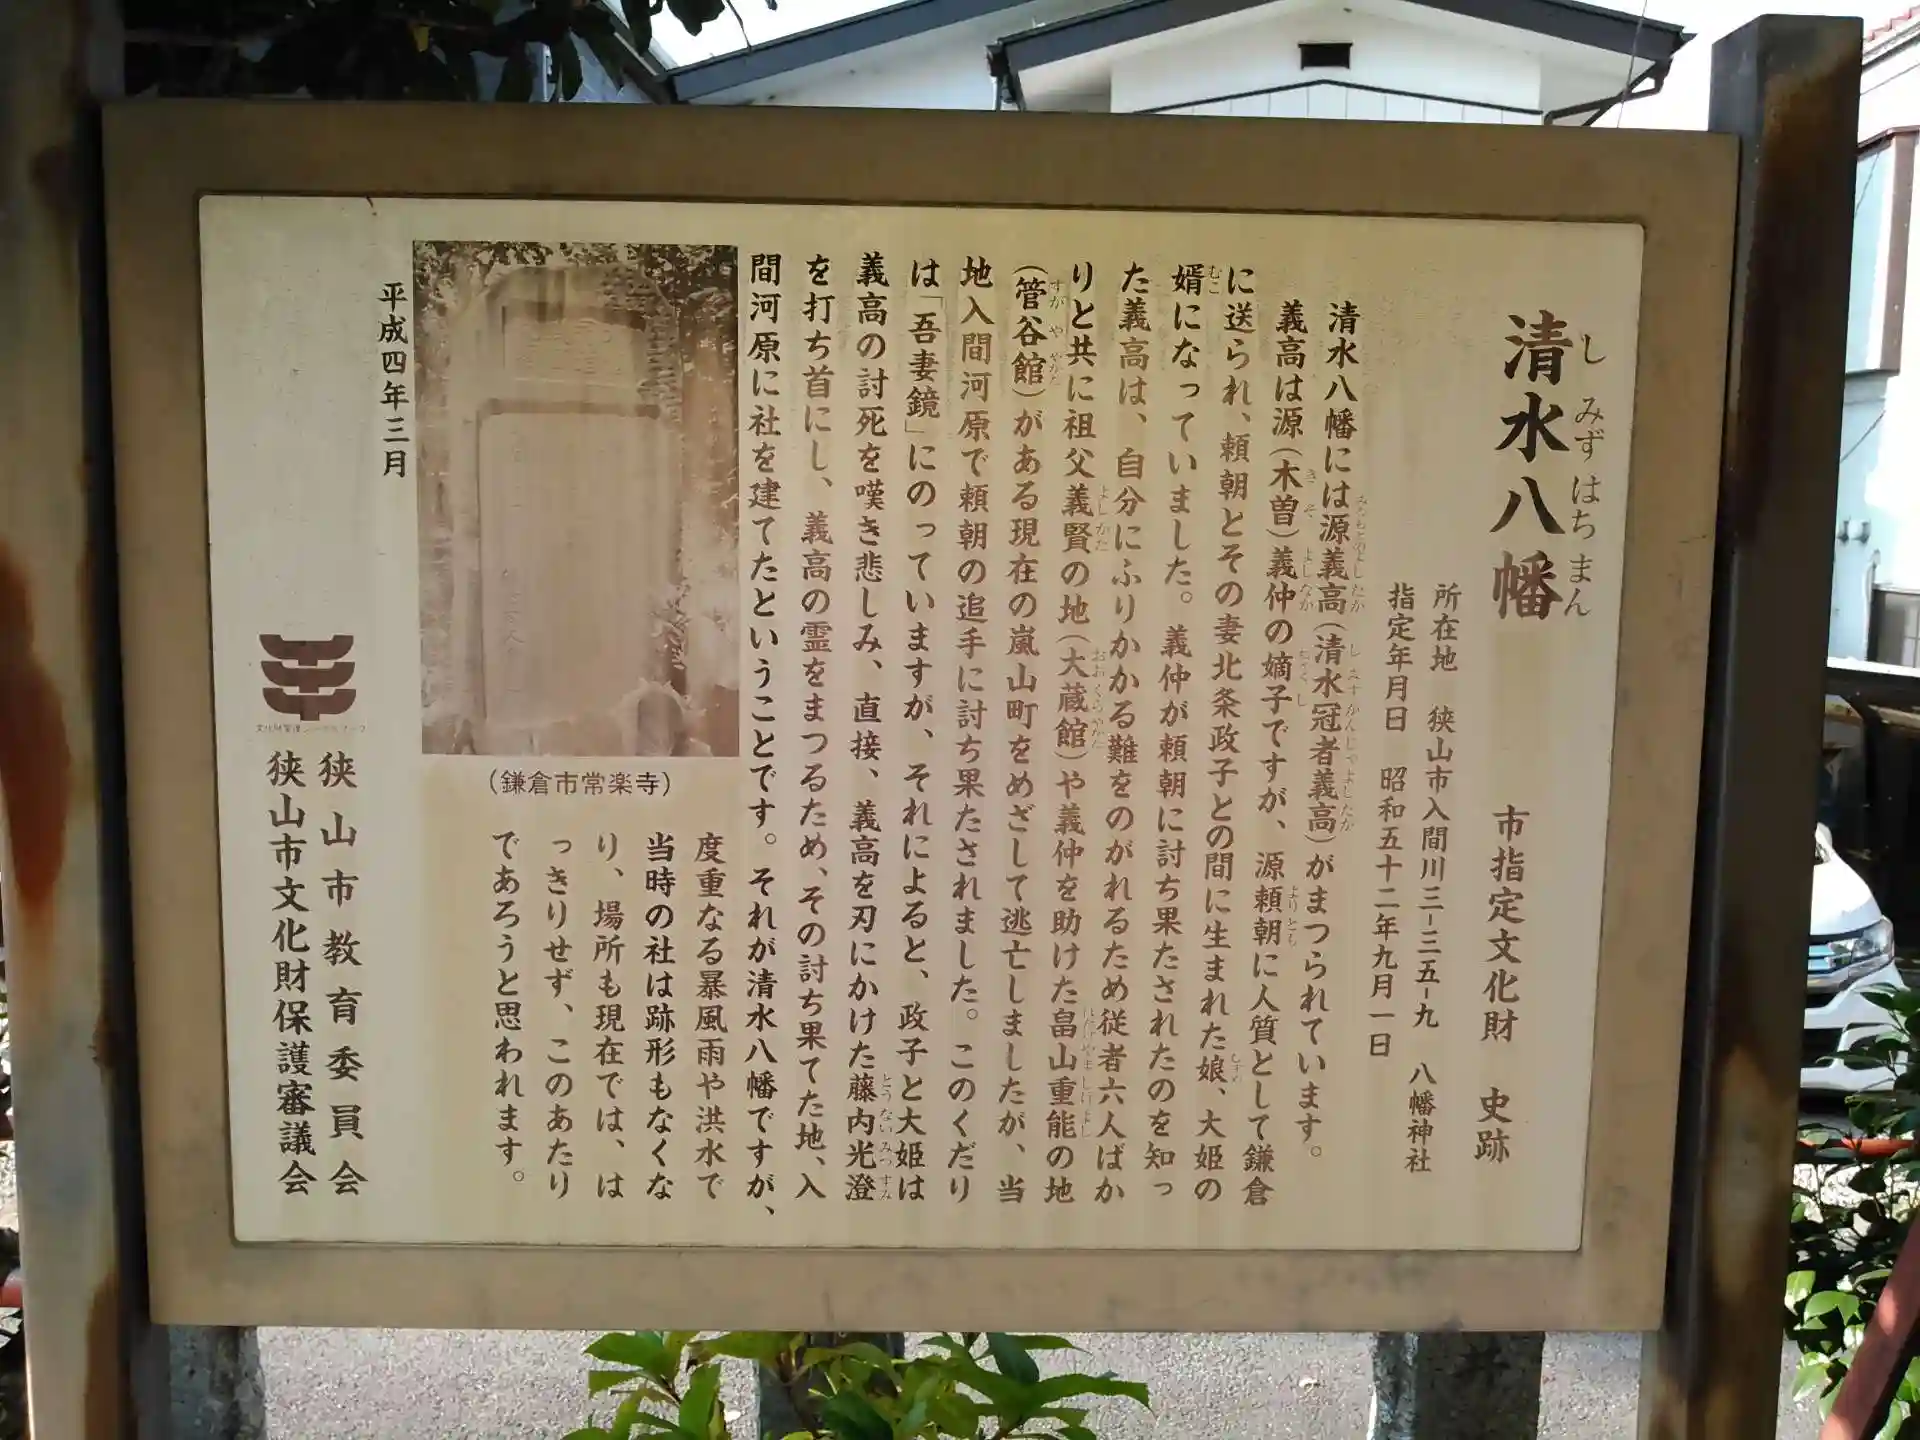 清水八幡
しみずはちまん
市指定文化財　史跡
所在地　狭山市入間川三-三五-九　八幡神社
指定年月日　昭和五十二年九月一日
清水八幡には源義高(清水冠者義高)がまつられています。
義高は源(木曽)義仲の嫡子ですが、源頼朝に人質として鎌倉
に送られ、頼朝とその妻北条政子との間に生まれた娘、大姫の
婿になっていました。義仲が頼朝に討ち果たされたのを知っ
た義高は、自分にふりかかる難をのがれるため従者六人ばか
りと共に祖父義賢の地(大蔵館)や義仲を助けた畠山重能の地
(管谷館)がある現在の嵐山町をめざして逃亡しましたが、当
地入間河原で頼朝の追手に討ち果たされました。このくだり
は「吾妻鏡」にのっていますが、それによると、政子と大姫は
義高の討死を嘆き悲しみ、直接、義高を刃にかけた藤内光澄
を打ち首にし、義高の霊をまつるため、その討ち果てた地、入
間河原に社を建てたということです。それが清水八幡ですが、
度重なる暴風雨や洪水で
当時の社は跡形もなくな
り、場所も現在では、は
っきりせず、このあたり
であろうと思われます。
(鎌倉市常楽寺)
平成四年三月
狭山市教育委員会
狭山市文化財保護審議会